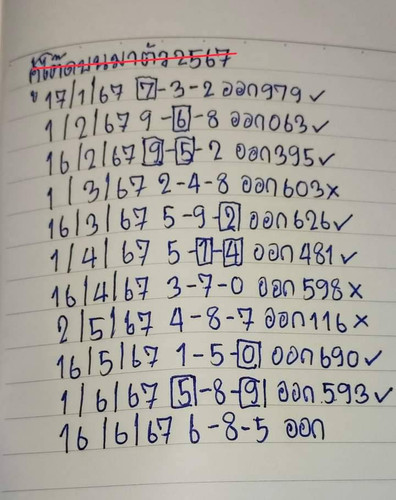 คู่โต๊ดบนมาตัว2567
17/1/67 7-3-2 ออก979✓
1/2/67 9-6-8 ออก063✓
16/2/67 9-5-2 ออก395✓
1/3/67 2-4-8 ออก603×
16/3/67 5-9-2 ออก626✓
1/4/67 5-1-4 ออก481✓
16/4/67 3-7-0 ออก598×
2/5/67 4-8-7 ออก116×
16/5/67 1-5-0 ออก690✓
1/6/67 5-8-9 ออก593✓
16/6/67 6-8-5 ออก